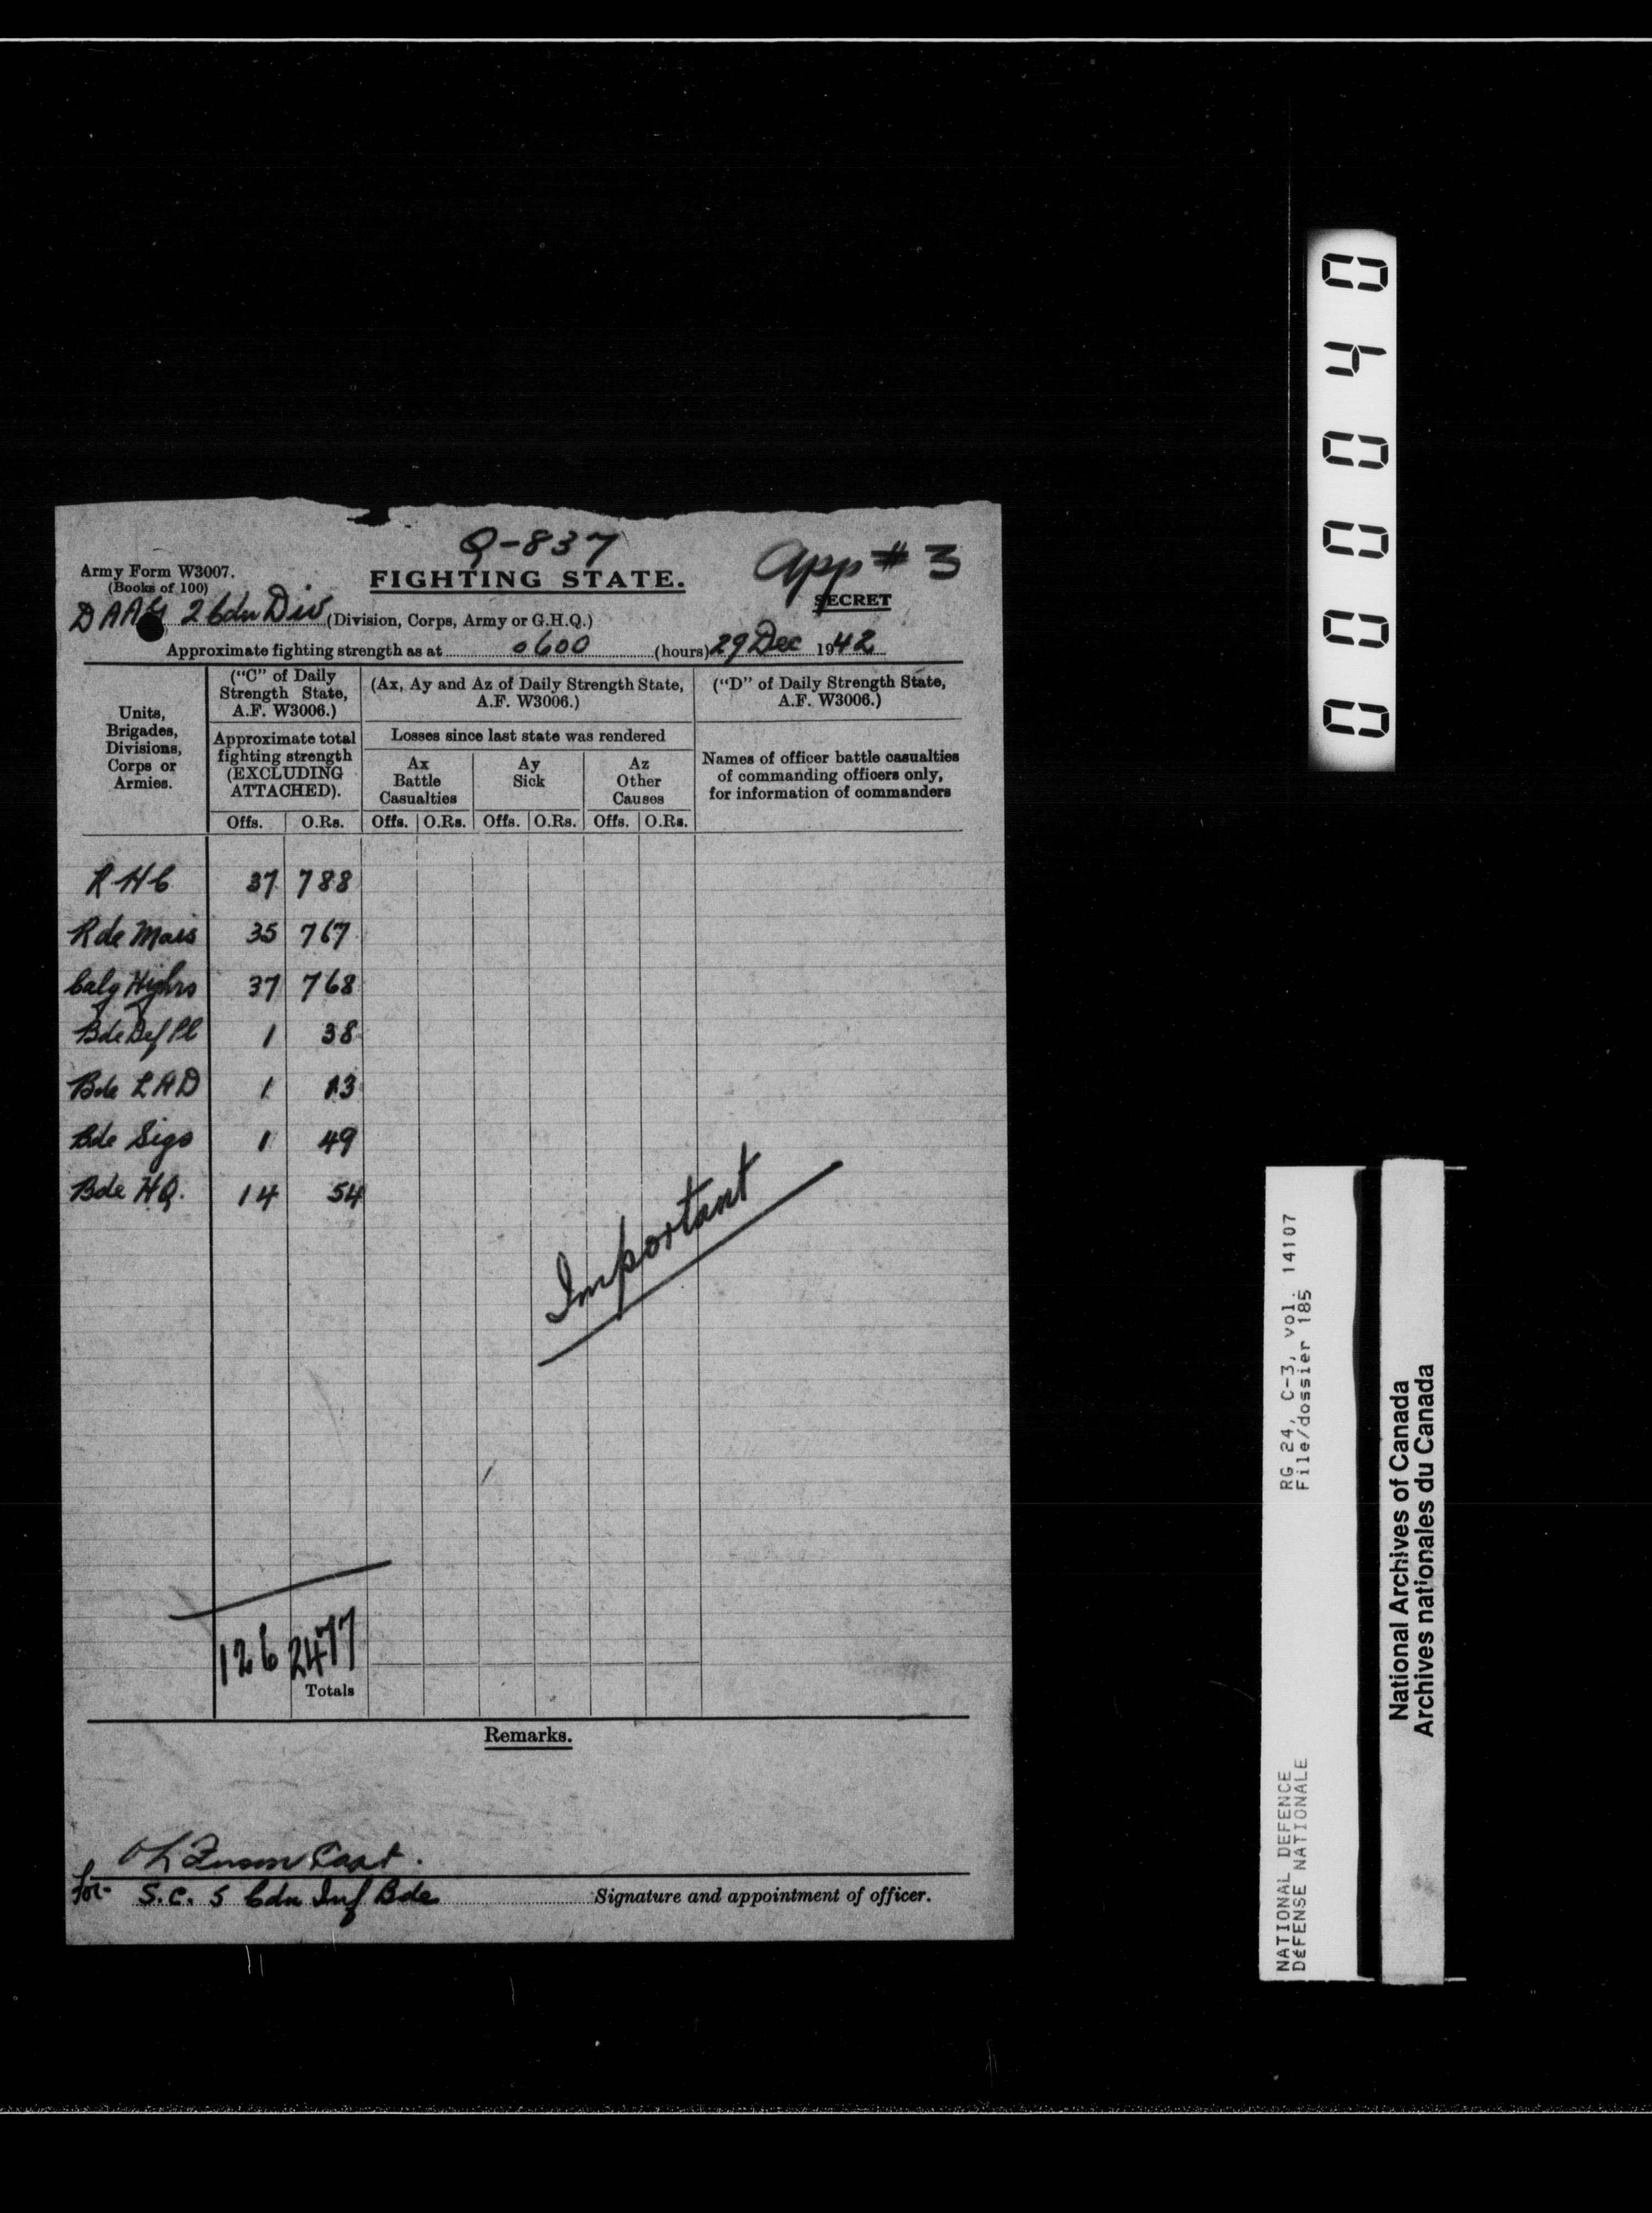 Q-837
App # 3
Army Form W3007.
(Books of 100)
FIGHTING STATE.
SECRET
DAAG 2 Cdn Div (Division, Corps, Army or G.H.Q.)
Approximate fighting strength as at 0600 (hours) 29 Dec 1942
Units, Brigades, Divisions, Corps or Armies.
("C" of Daily Strength State, A.F. W3006.)
Approximate total fighting strength (EXCLUDING ATTACHED).
(Ax, Ay and Az of Daily Strength State, A.F. W3006.)
Losses since last state was rendered
Ax Battle Casualties
Ay Sick
Az Other Causes
("D" of Daily Strength State, A.F. W3006.)
Names of officer battle casualties of commanding officers only, for information of commanders
Offs. O.Rs. Offs. O.Rs. Offs. O.Rs. Offs. O.Rs.
R H C 37 788
R de Mais 35 767
Calg Highrs 37 768
Bde Def Pl 1 38
Bde L A D 1 13
Bde Sigs 1 49
Bde H.Q. 14 54
Important
126 2477
Totals
Remarks.
Capt.
for S.C. 5 Cdn Inf Bde Signature and appointment of officer.
0000040
RG 24, C-3, vol. 14107
File/dossier 185
NATIONAL DEFENCE
DéFENSE NATIONALE
National Archives of Canada
Archives nationales du Canada